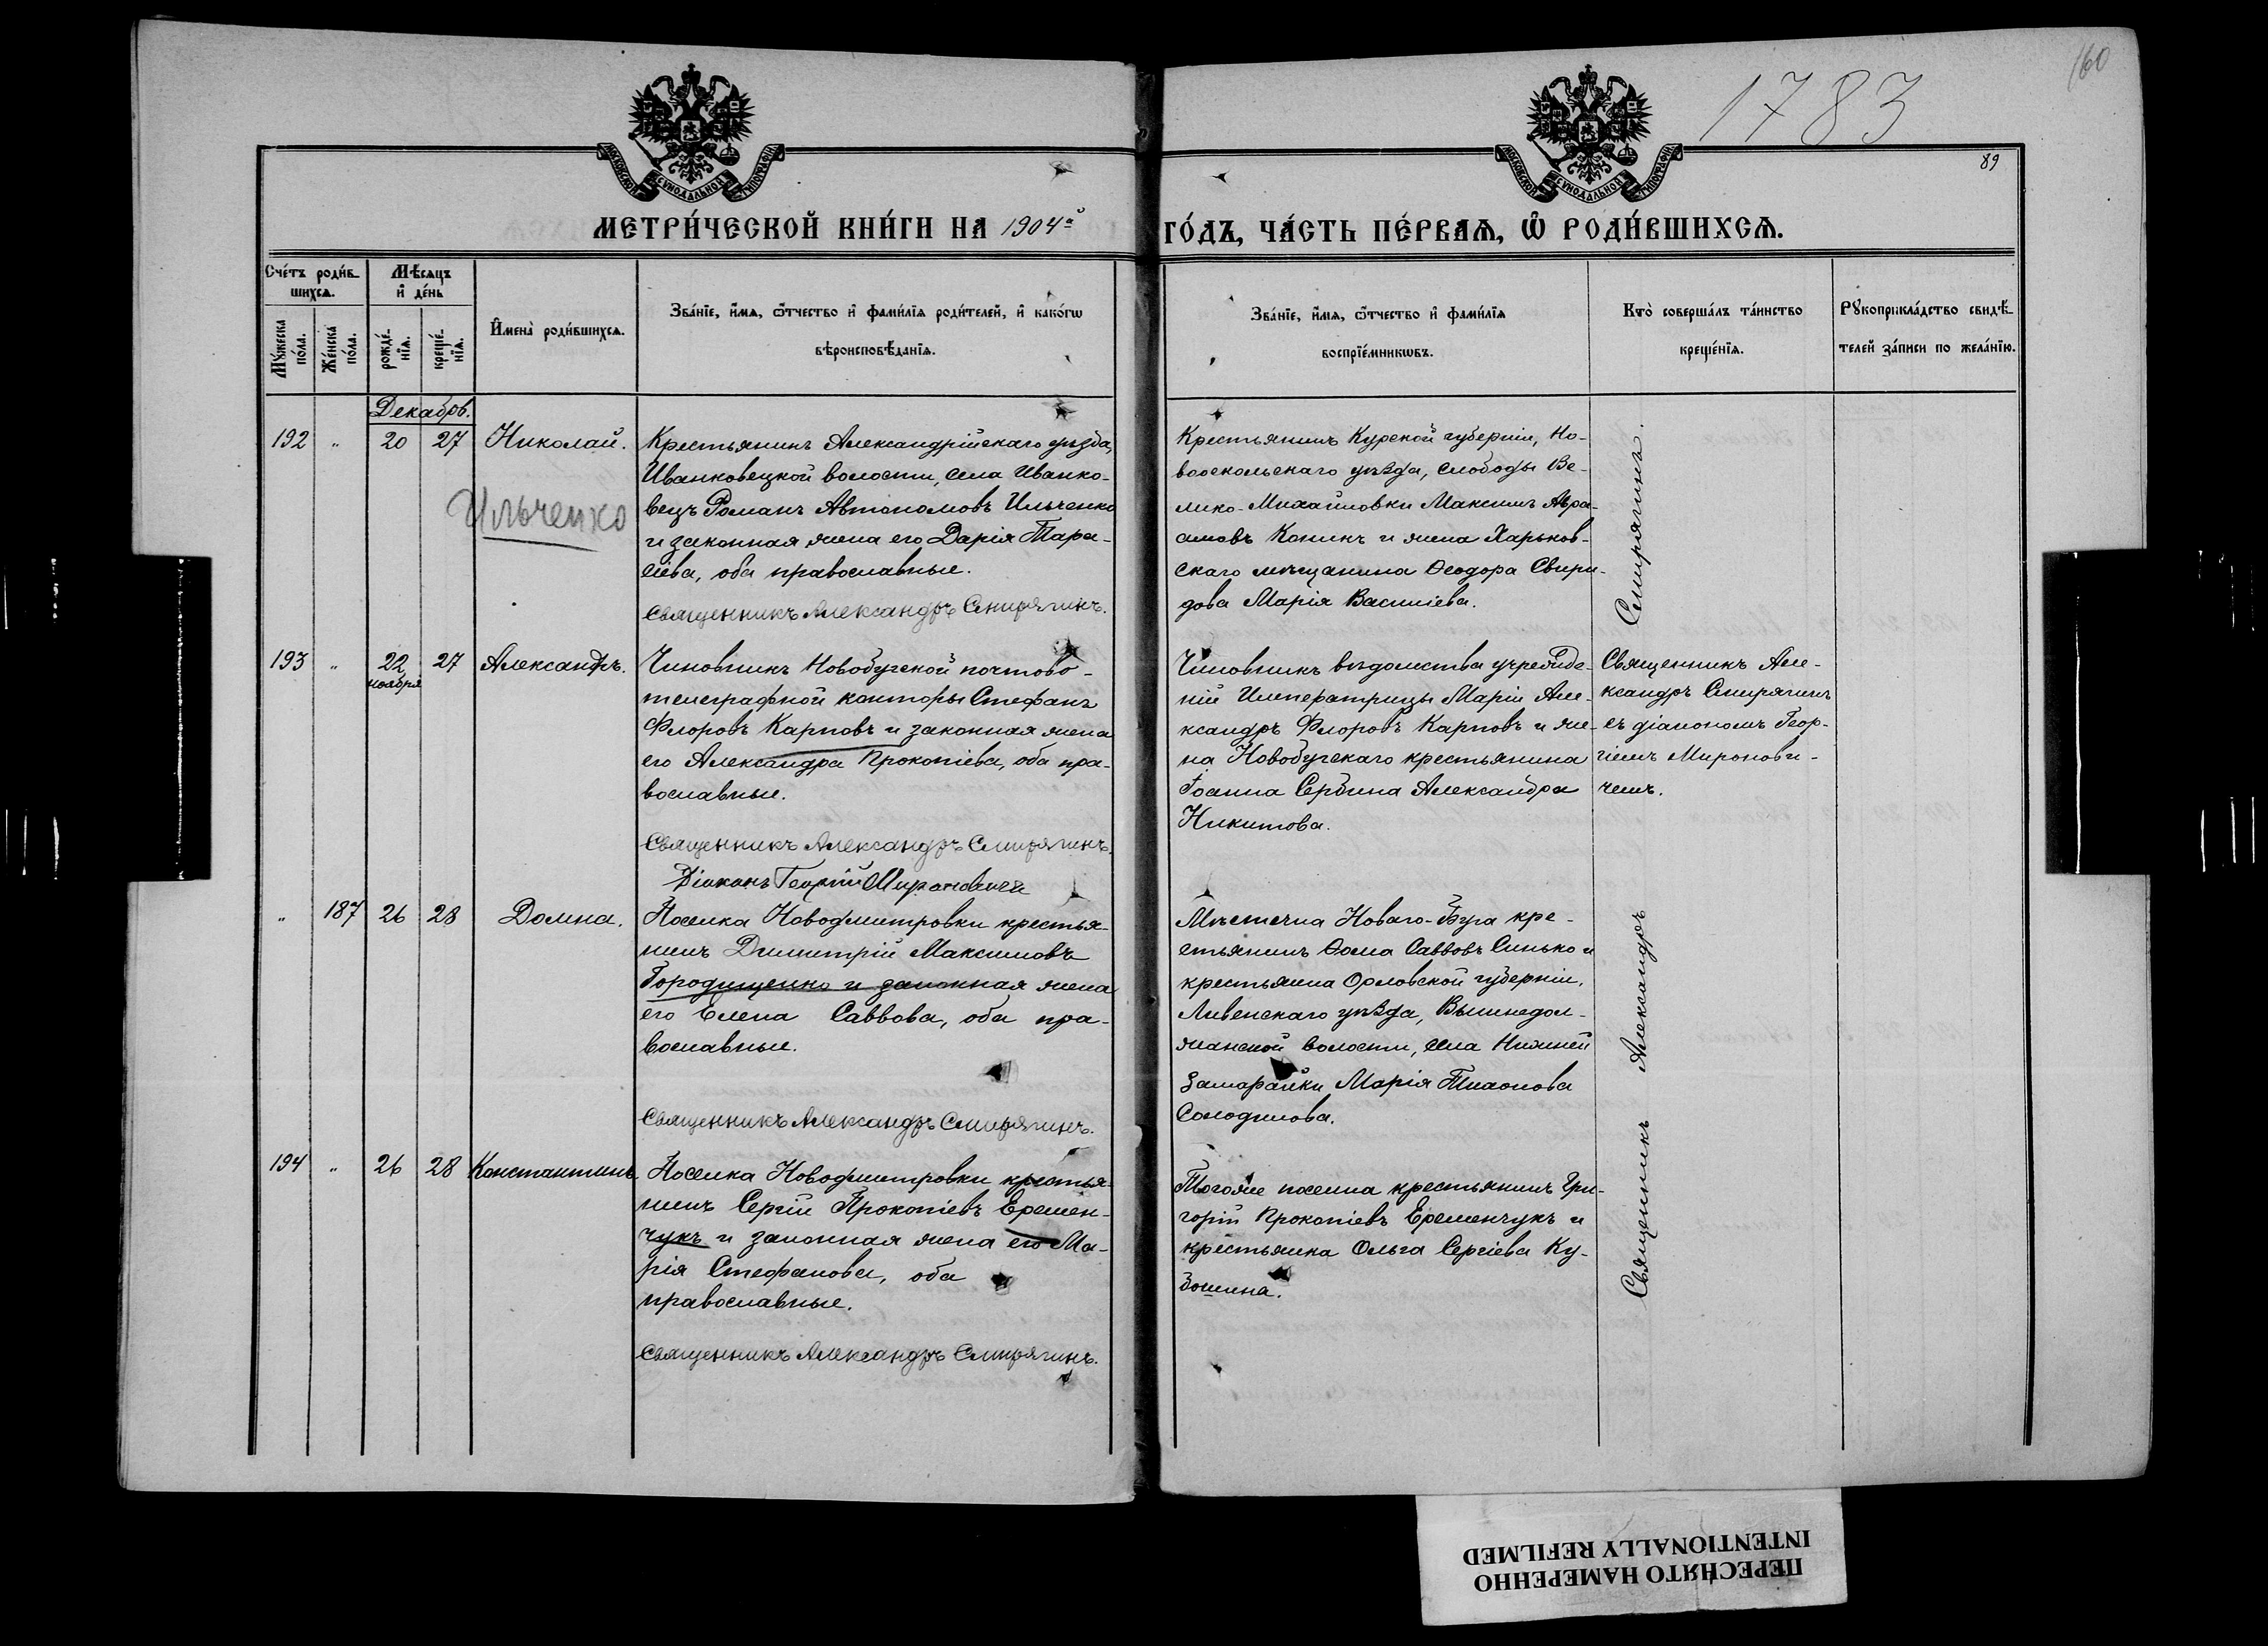 160
1783
89
МОСКОВСКОЙ СѴНОДАЛЬНОЙ ТИПОГРАФІИ
МОСКОВСКОЙ СѴНОДАЛЬНОЙ ТИПОГРАФІИ
МЕТРИ́ЧЕСКОЙ КНИ́ГИ НА 1904й ГО́ДЪ, ЧА́СТЬ ПЕ́РВАѦ, Ѽ РОДИ́ВШИХСѦ.
Сче́тъ роди́в-
шихсѧ.
Мꙋ́жеска по́ла.
Же́нска по́ла.
Мѣ́сѧцъ
и҆ де́нь
рожде́-нїѧ.
креще́-нїѧ.
И҆мена̀ роди́вшихсѧ.
Зва́нїе, и҆́мѧ, ѻ҆́тчество и҆ фами́лїѧ роди́телей, и҆ како́гѡ
вѣроисповѣ́данїѧ.
Зва́нїе, и҆́мѧ, ѻ҆́тчество и҆ фами́лїѧ
воспрїе́мникѡвъ.
Кто̀ соверша́лъ та́инство
креще́нїѧ.
Рꙋкоприкла́дство свидѣ́-
телей за́писи по жела́нїю.
Декабрь.
192 " 20 27 Николай.
Ильченко
Крестьянинъ Александрійскаго уѣзда,
Иванковецкой волости, села Иванко-
вецъ Романъ Автономовъ Ильченко
и законная жена его Дарія Тара-
сіева, оба православные.
Священникъ Александръ Смирягинъ.
Крестьянинъ Курской губерніи, Но-
вооскольскаго уѣзда, слободы Ве-
лико-Михайловки Максимъ Авра-
амовъ Конинъ и жена Харьков-
скаго мѣщанина Ѳеодора Свири-
дова Марія Василіева.
193 " 22 ноября 27 Александръ.
Чиновникъ Новобугской почтово-
телеграфной конторы Стефанъ
Флоровъ Карповъ и законная жена
его Александра Прокопіева, оба пра-
вославные.
Священникъ Александръ Смирягинъ.
Діаконъ Георгій Мироновичъ
Чиновникъ вѣдомства учрежде-
ній Императрицы Маріи Але-
ксандръ Флоровъ Карповъ и же-
на Новобугскаго крестьянина
Іоанна Сербина Александра
Никитова.
Священникъ Але-
ксандръ Смирягинъ
съ діакономъ Геор-
гіемъ Миронови-
чемъ.
" 187 26 28 Домна.
Поселка Новодмитровки крестья-
нинъ Димитрій Максимовъ
Городищенко и законная жена
его Елена Саввова, оба пра-
вославные.
Священникъ Александръ Смирягинъ.
Мѣстечка Новаго-Буга кре-
стьянинъ Ѳома Саввовъ Синько и
крестьянка Орловской губерніи,
Ливенскаго уѣзда, Вышнедол-
жанской волости, села Нижней
Замарайки Марія Тихонова
Солодилова.
194 " 26 28 Константинъ.
Поселка Новодмитровки крестья-
нинъ Сергій Прокопіевъ Еремен-
чукъ и законная жена его Ма-
рія Стефанова, оба
православные.
Священникъ Александръ Смирягинъ.
Тогоже поселка крестьянинъ Гри-
горій Прокопіевъ Еременчукъ и
крестьянка Ольга Сергіева Ку-
Священникъ Александръ Смирягинъ.
ПЕРЕСНЯТО НАМЕРЕННО
INTENTIONALLY REFILMED